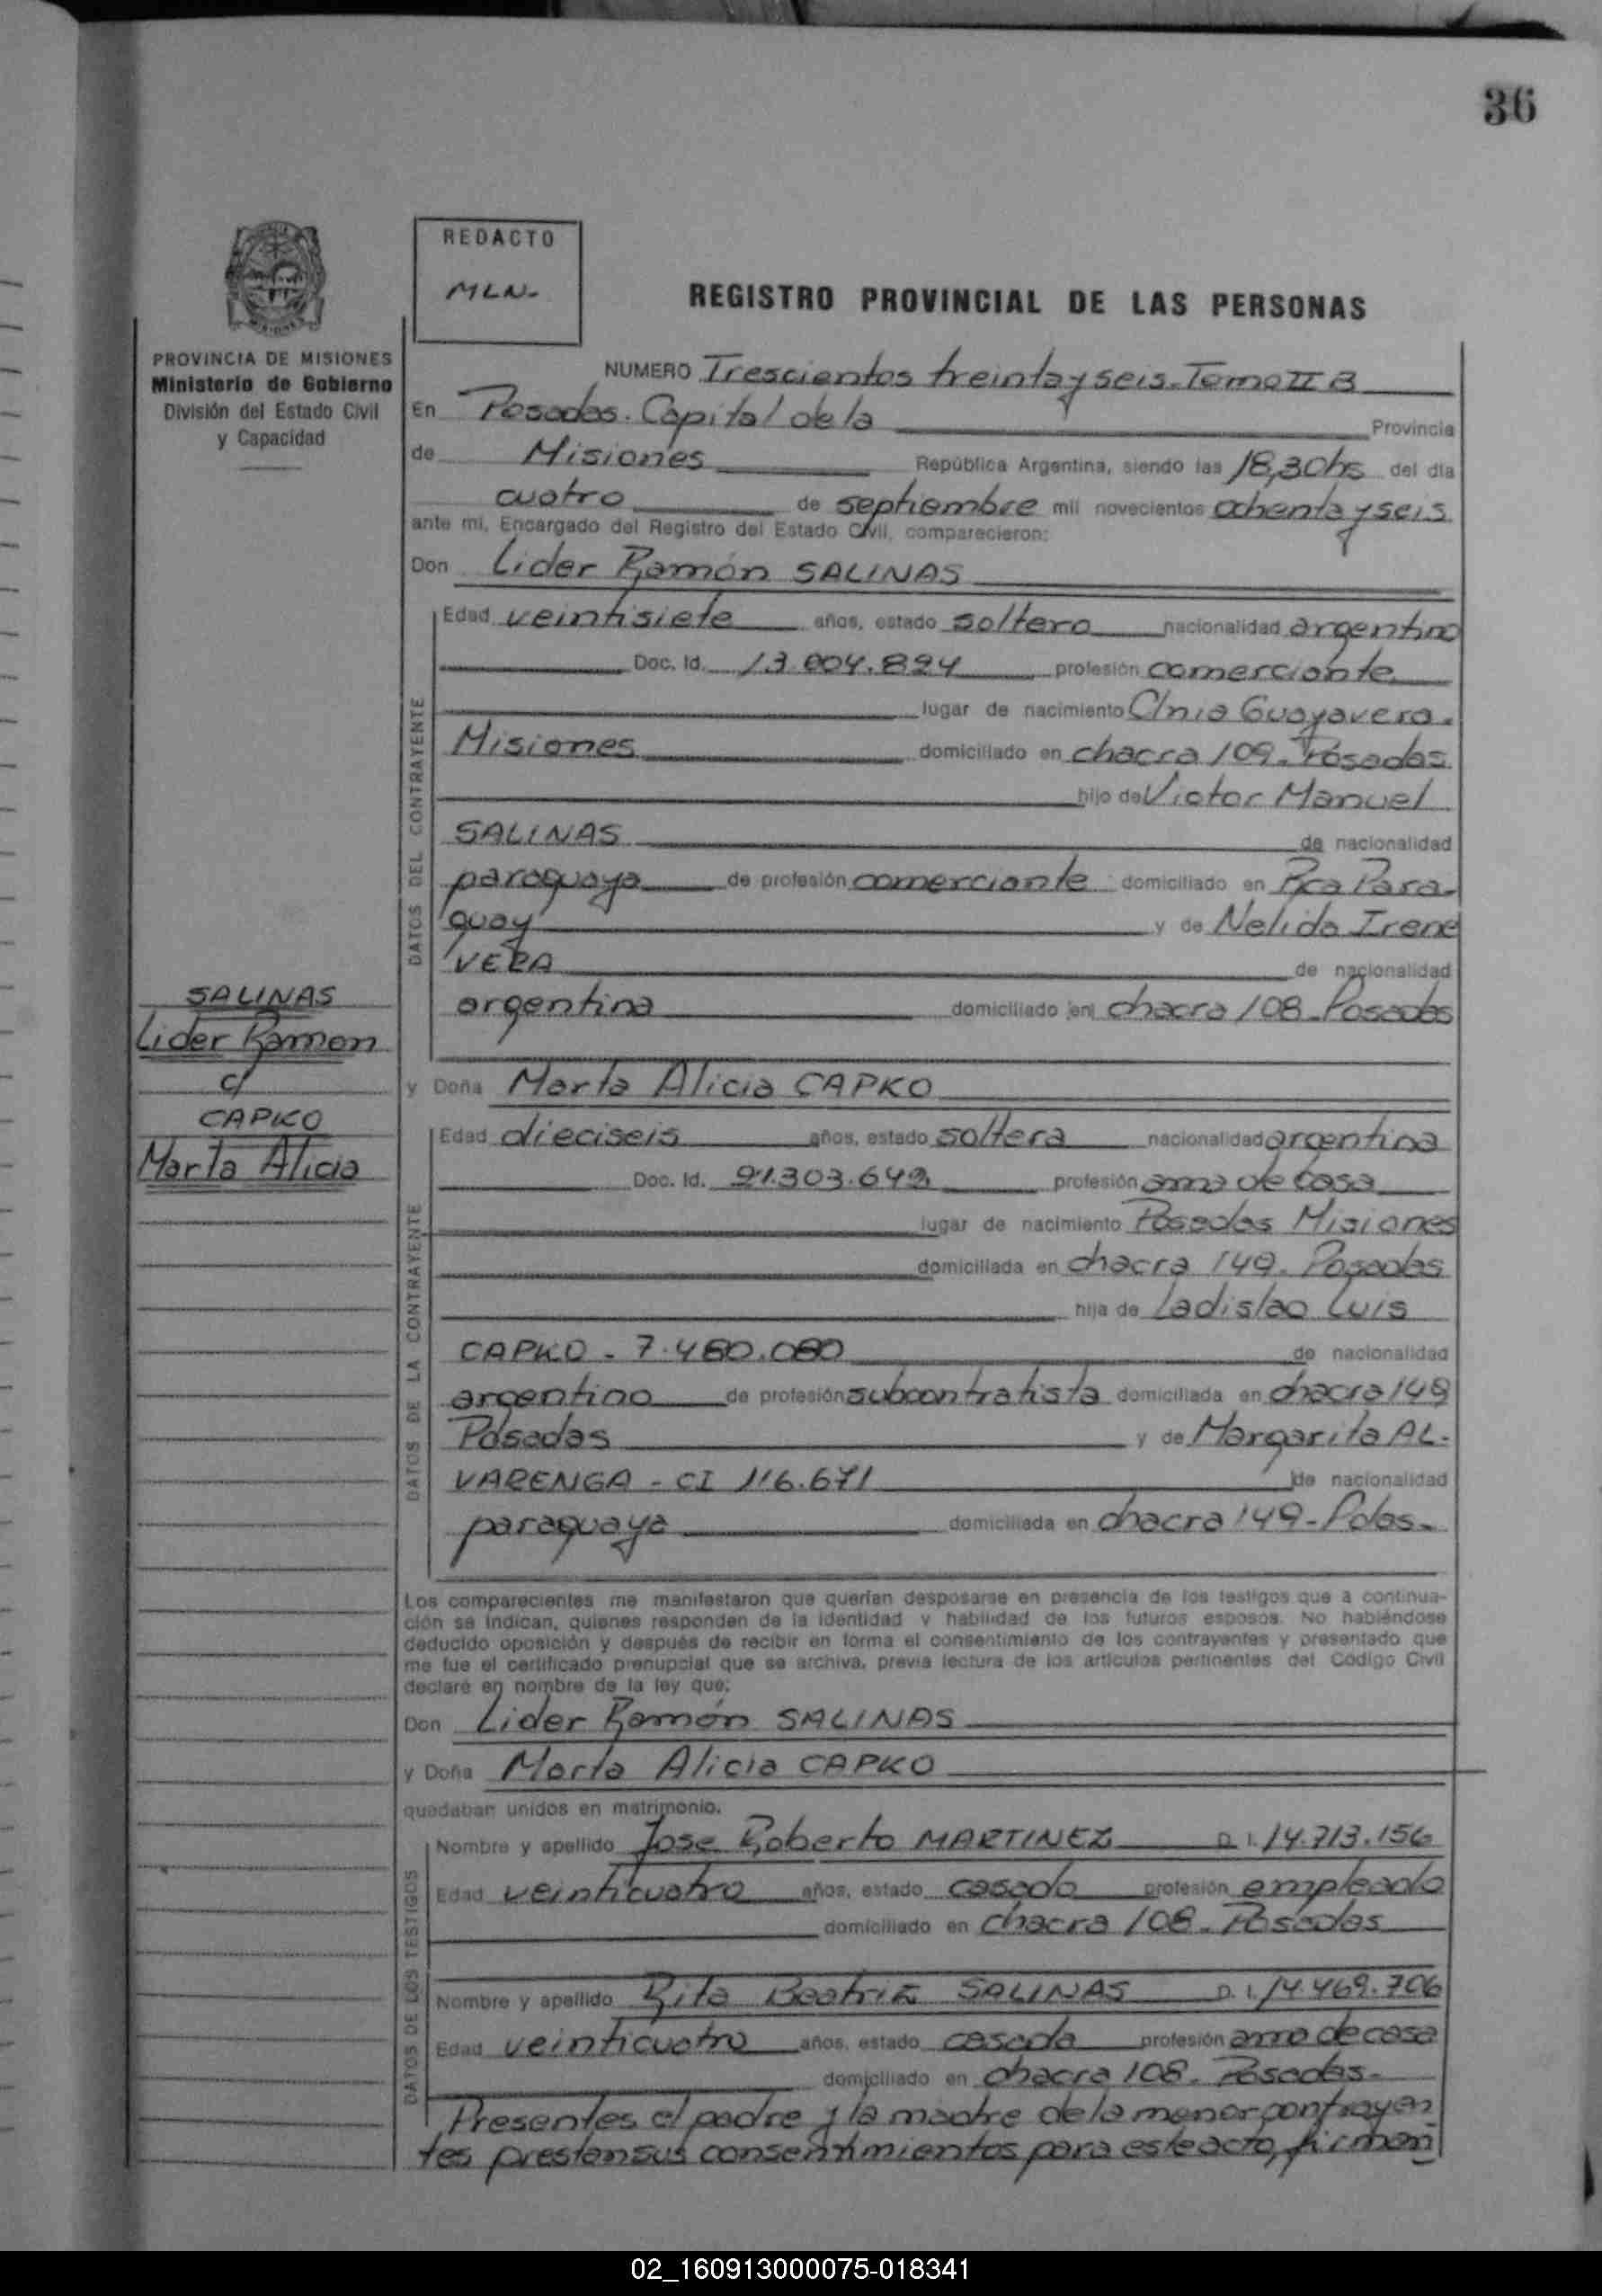 36
REDACTO
MLN-
REGISTRO PROVINCIAL DE LAS PERSONAS
PROVINCIA DE MISIONES
Ministerio de Gobierno
División del Estado Civil
y Capacidad
NUMERO Trescientos treinta y seis. Tomo II B
En Posadas. Capital de la Provincia
de Misiones República Argentina, siendo las 18,30hs del día
cuatro de septiembre mil novecientos ochenta y seis
ante mi, Encargado del Registro del Estado Civil, comparecieron:
Don Lider Ramón SALINAS
DATOS DEL CONTRAYENTE
Edad veintisiete años, estado soltero nacionalidad argentino
Doc. Id. 13.004.894 profesión comerciante
lugar de nacimiento C/nia Guayavera.
Misiones domiciliado en chacra 109. Posadas
hijo de Victor Manuel
SALINAS de nacionalidad
paraguaya de profesión comerciante domiciliado en Rca Para-
guay y de Nelida Irene
VERA de nacionalidad
argentina domiciliado en chacra 108. Posadas
SALINAS
Lider Ramon
c/
CAPKO
Marta Alicia
y Doña Marta Alicia CAPKO
DATOS DE LA CONTRAYENTE
Edad dieciseis años, estado soltera nacionalidad argentina
Doc. Id. 21.303.649 profesión ama de casa
lugar de nacimiento Posadas Misiones
domiciliada en chacra 149. Posadas
hija de Ladislao Luis
CAPKO - 7.480.080 de nacionalidad
argentino de profesión subcontratista domiciliada en chacra 149
Posadas y de Margarita AL-
VARENGA - CI 116.671 de nacionalidad
paraguaya domiciliada en chacra 149-Pdas-
Los comparecientes me manifestaron que querían desposarse en presencia de los testigos que a continua-
ción se indican, quienes responden de la identidad y habilidad de los futuros esposos. No habiéndose
deducido oposición y después de recibir en forma el consentimiento de los contrayentes y presentado que
me fue el certificado prenupcial que se archiva, previa lectura de los artículos pertinentes del Código Civil
declaré en nombre de la ley que:
Don Lider Ramón SALINAS
y Doña Marta Alicia CAPKO
quedaban unidos en matrimonio.
DATOS DE LOS TESTIGOS
Nombre y apellido Jose Roberto MARTINEZ D. I. 14.713.156
Edad veinticuatro años, estado casado profesión empleado
domiciliado en chacra 108. Posadas
Nombre y apellido Rita Beatriz SALINAS D. I. 14.469.706
Edad veinticuatro años, estado casada profesión ama de casa
domiciliado en chacra 108. Posadas-
Presentes el padre y la madre de la menor contrayen
tes prestan sus consentimientos para este acto, firman
02_160913000075-018341